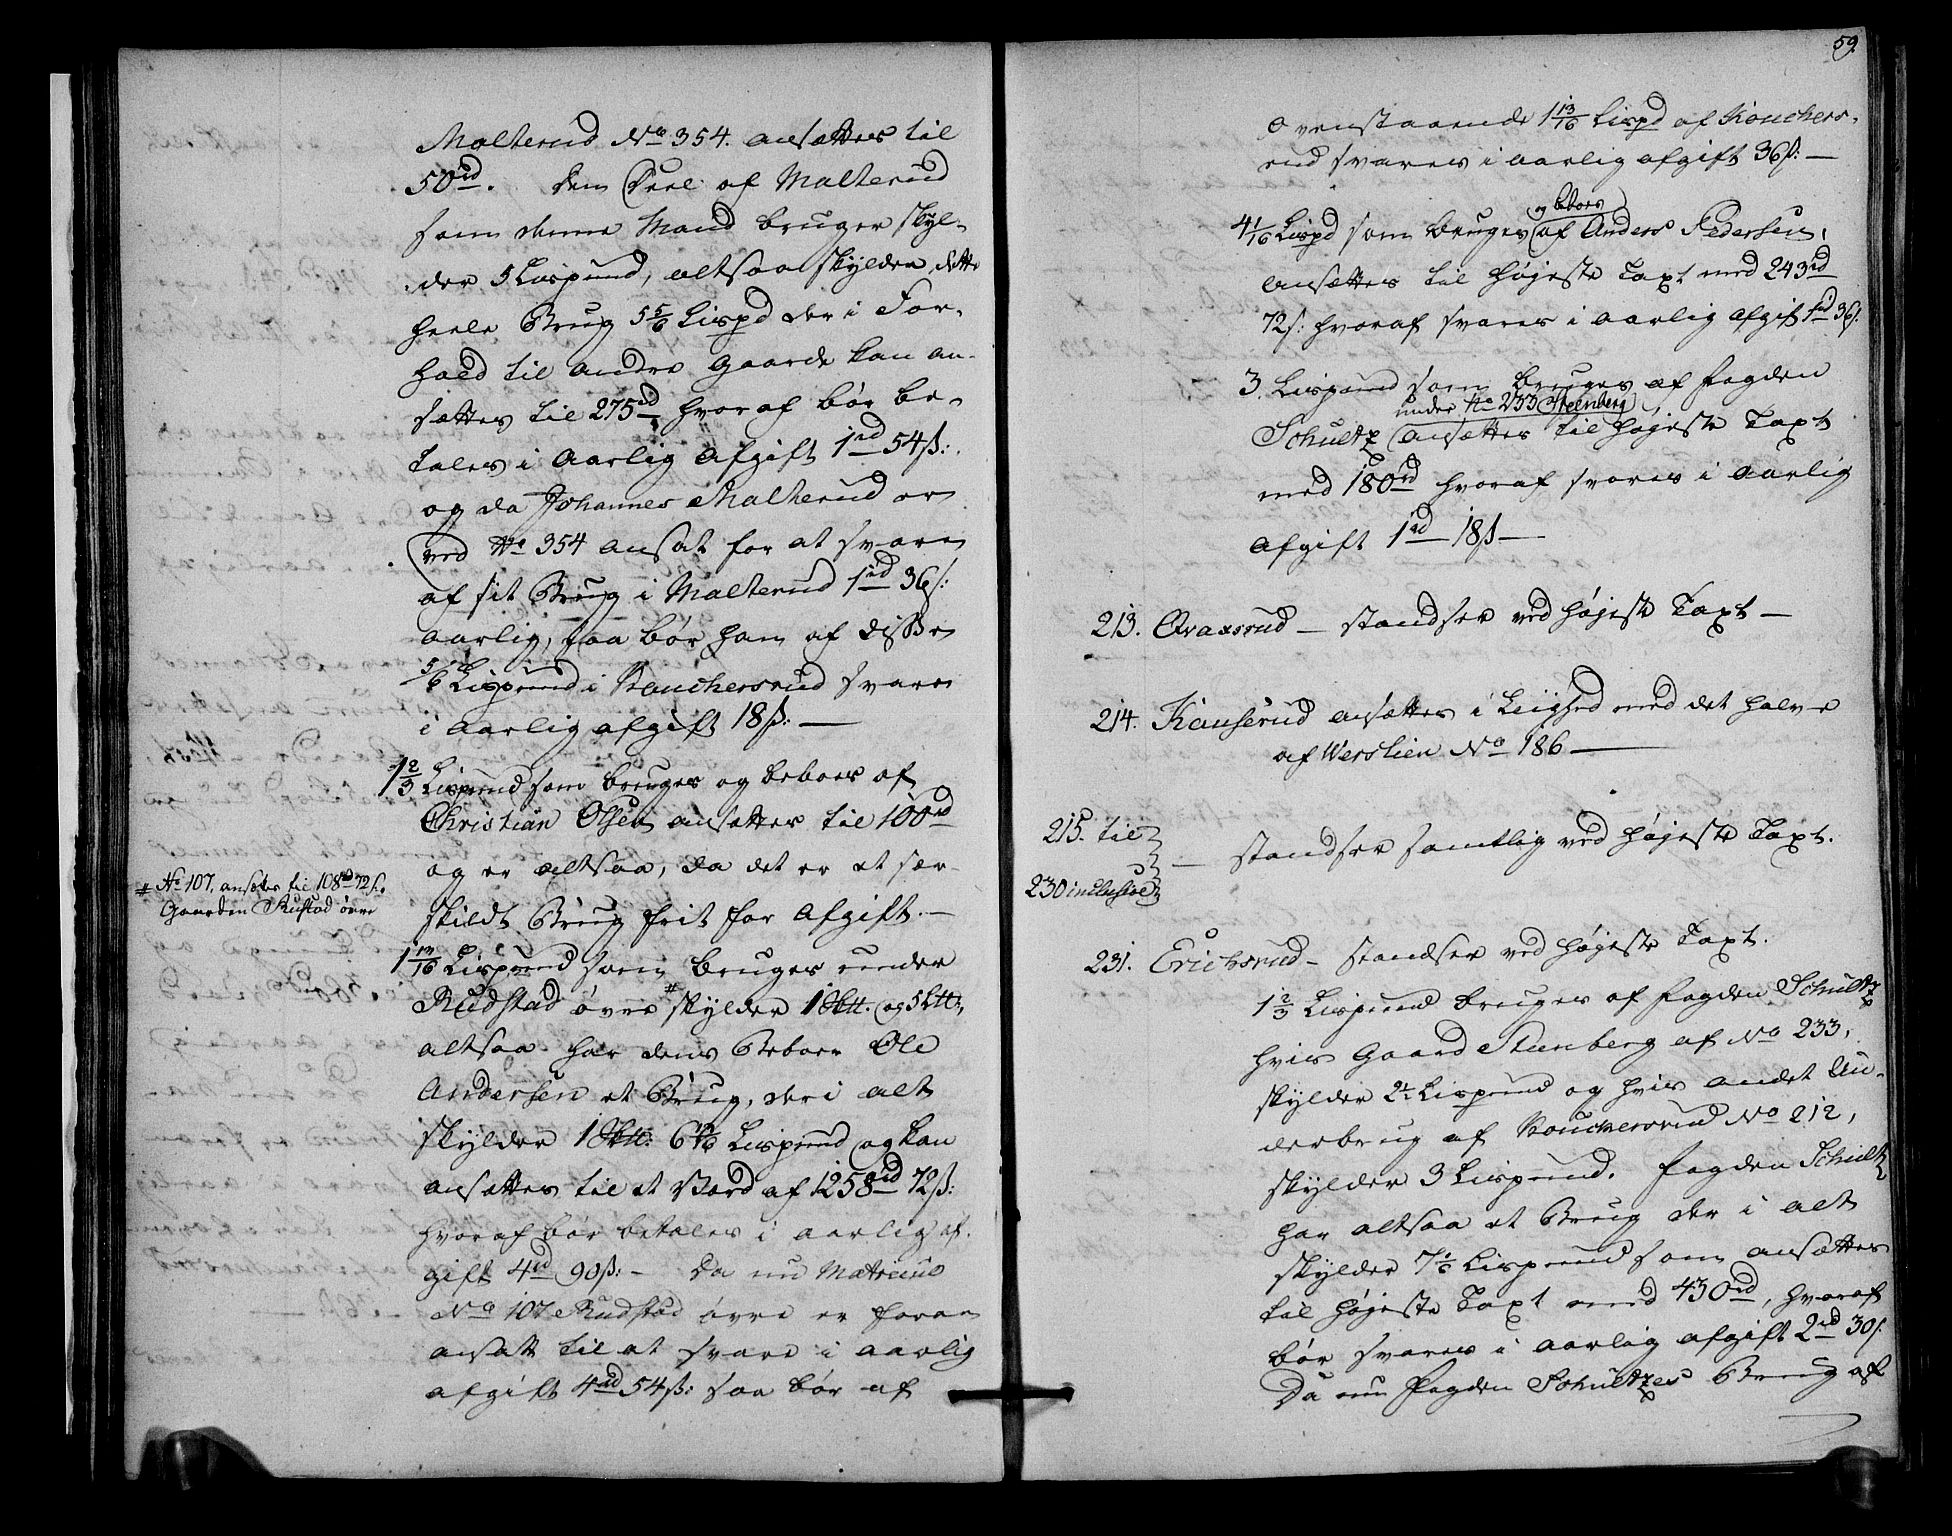 Malterud No 354. ansættes til
50rd. Den Deel af Malterud
som denne Mand bruger skyl-
der 5 Lispund, altsaa skylder dette
heele Brug 5 5/6 Lispd der i For-
hold til andre Gaarde kan an-
sættes til 275rd hvoraf bør be-
tales i Aarlig Afgift 1rd 54ß:
og da Johannes Malterud er
ved No 354 ansat for at svare
af sit Brug i Malterud 1rd 36ß:
aarlig, saa bør han af disse
5/6 Lispund i Rouchersrud svare
i aarlig afgift 18ß: —
1 2/3 Lispund som bruges og beboes af
Christian Olsen ansættes til 100rd
og er altsaa, da det er et sær-
skildt Brug frit for Afgift. —
# No 107. ansættes til 108rd 72ß.
Gaarden Rustad øvre
1 13/16 Lispund som bruges under
Rudstad øvre # skylder 1 Sktt. og 5 Ltt:,
altsaa har dens Beboer Ole
Andersen et Brug, der i alt
skylder 1 Sktt: 6 13/16 Lispund og kan
ansættes til et Værd af 1258rd 72ß:
hvoraf bør betales i aarlig af-
gift 4rd 90ß: — Da nu Matricul
No 107 Rudstad øvre er foran
ansatt til at svare i aarlig
afgift 4rd 54ß: saa bør af
59.
ovenstaaende 1 13/16 Lispd af Rouchers-
rud svares i aarlig afgift 36ß: —
og beboes
4 1/16 Lispd som bruges af Anders Pedersen,
ansættes til højeste Taxt med 243rd
72ß: hvoraf svares i aarlig afgift 1rd 36ß.
3 Lispund som bruges af Fogden
under No 233 Steenberg
Schultz ansættes til højeste Taxt
med 180rd hvoraf svares i aarlig
Afgift 1rd 18ß —
213. Qvaxrud — standser ved højeste Taxt —
214. Kanserud ansættes i Liighed med det halve
af Werslien No 186 —
215. til
— standser samtlig ved højeste Taxt.
230 inclusive
231. Erichsrud — standser ved højeste Taxt.
1 2/3 Lispund bruges af Fogden Schultz
hvis Gaard Stenberg af No 233,
skylder 2 1/2 Lispund og hvis andet Un-
derbrug af Rouchersrud No 212,
skylder 3 Lispund. Fogden Schultz
har altsaa et Brug der i alt
skylder 7 1/6 Lispund som ansættes
til højeste Taxt med 430rd, hvoraf
bør svares i aarlig afgift 2rd 30ß.
Da nu Fogden Schultzes Brug af